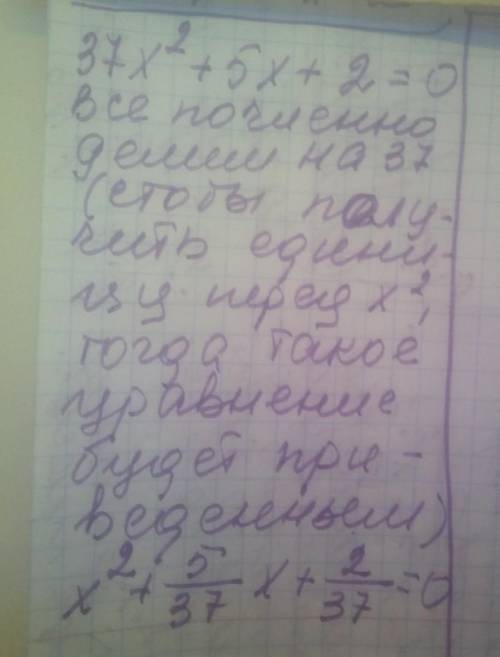 37x² + 5x + 2 = 0
все почленно
делим на 37
(стобы полу-
чить едини-
цу перед x²,
тогда такое
уравнение
будет при-
веденным)
x² + 5/37 x + 2/37 = 0